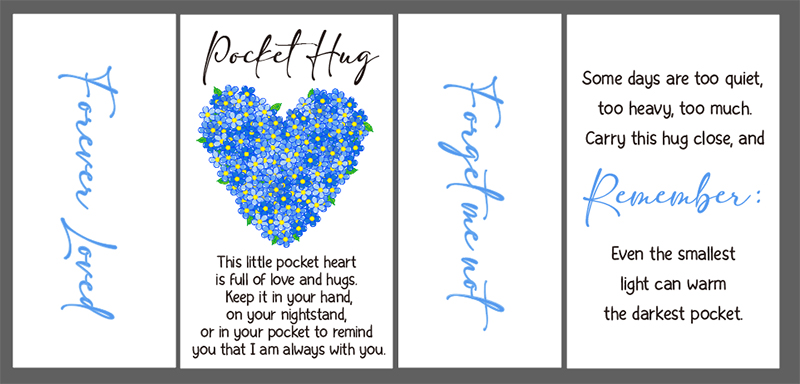 Forever Loved
Pocket Hug
This little pocket heart
is full of love and hugs.
Keep it in your hand,
on your nightstand,
or in your pocket to remind
you that I am always with you.
Forget me not
Some days are too quiet,
too heavy, too much.
Carry this hug close, and
Remember:
Even the smallest
light can warm
the darkest pocket.